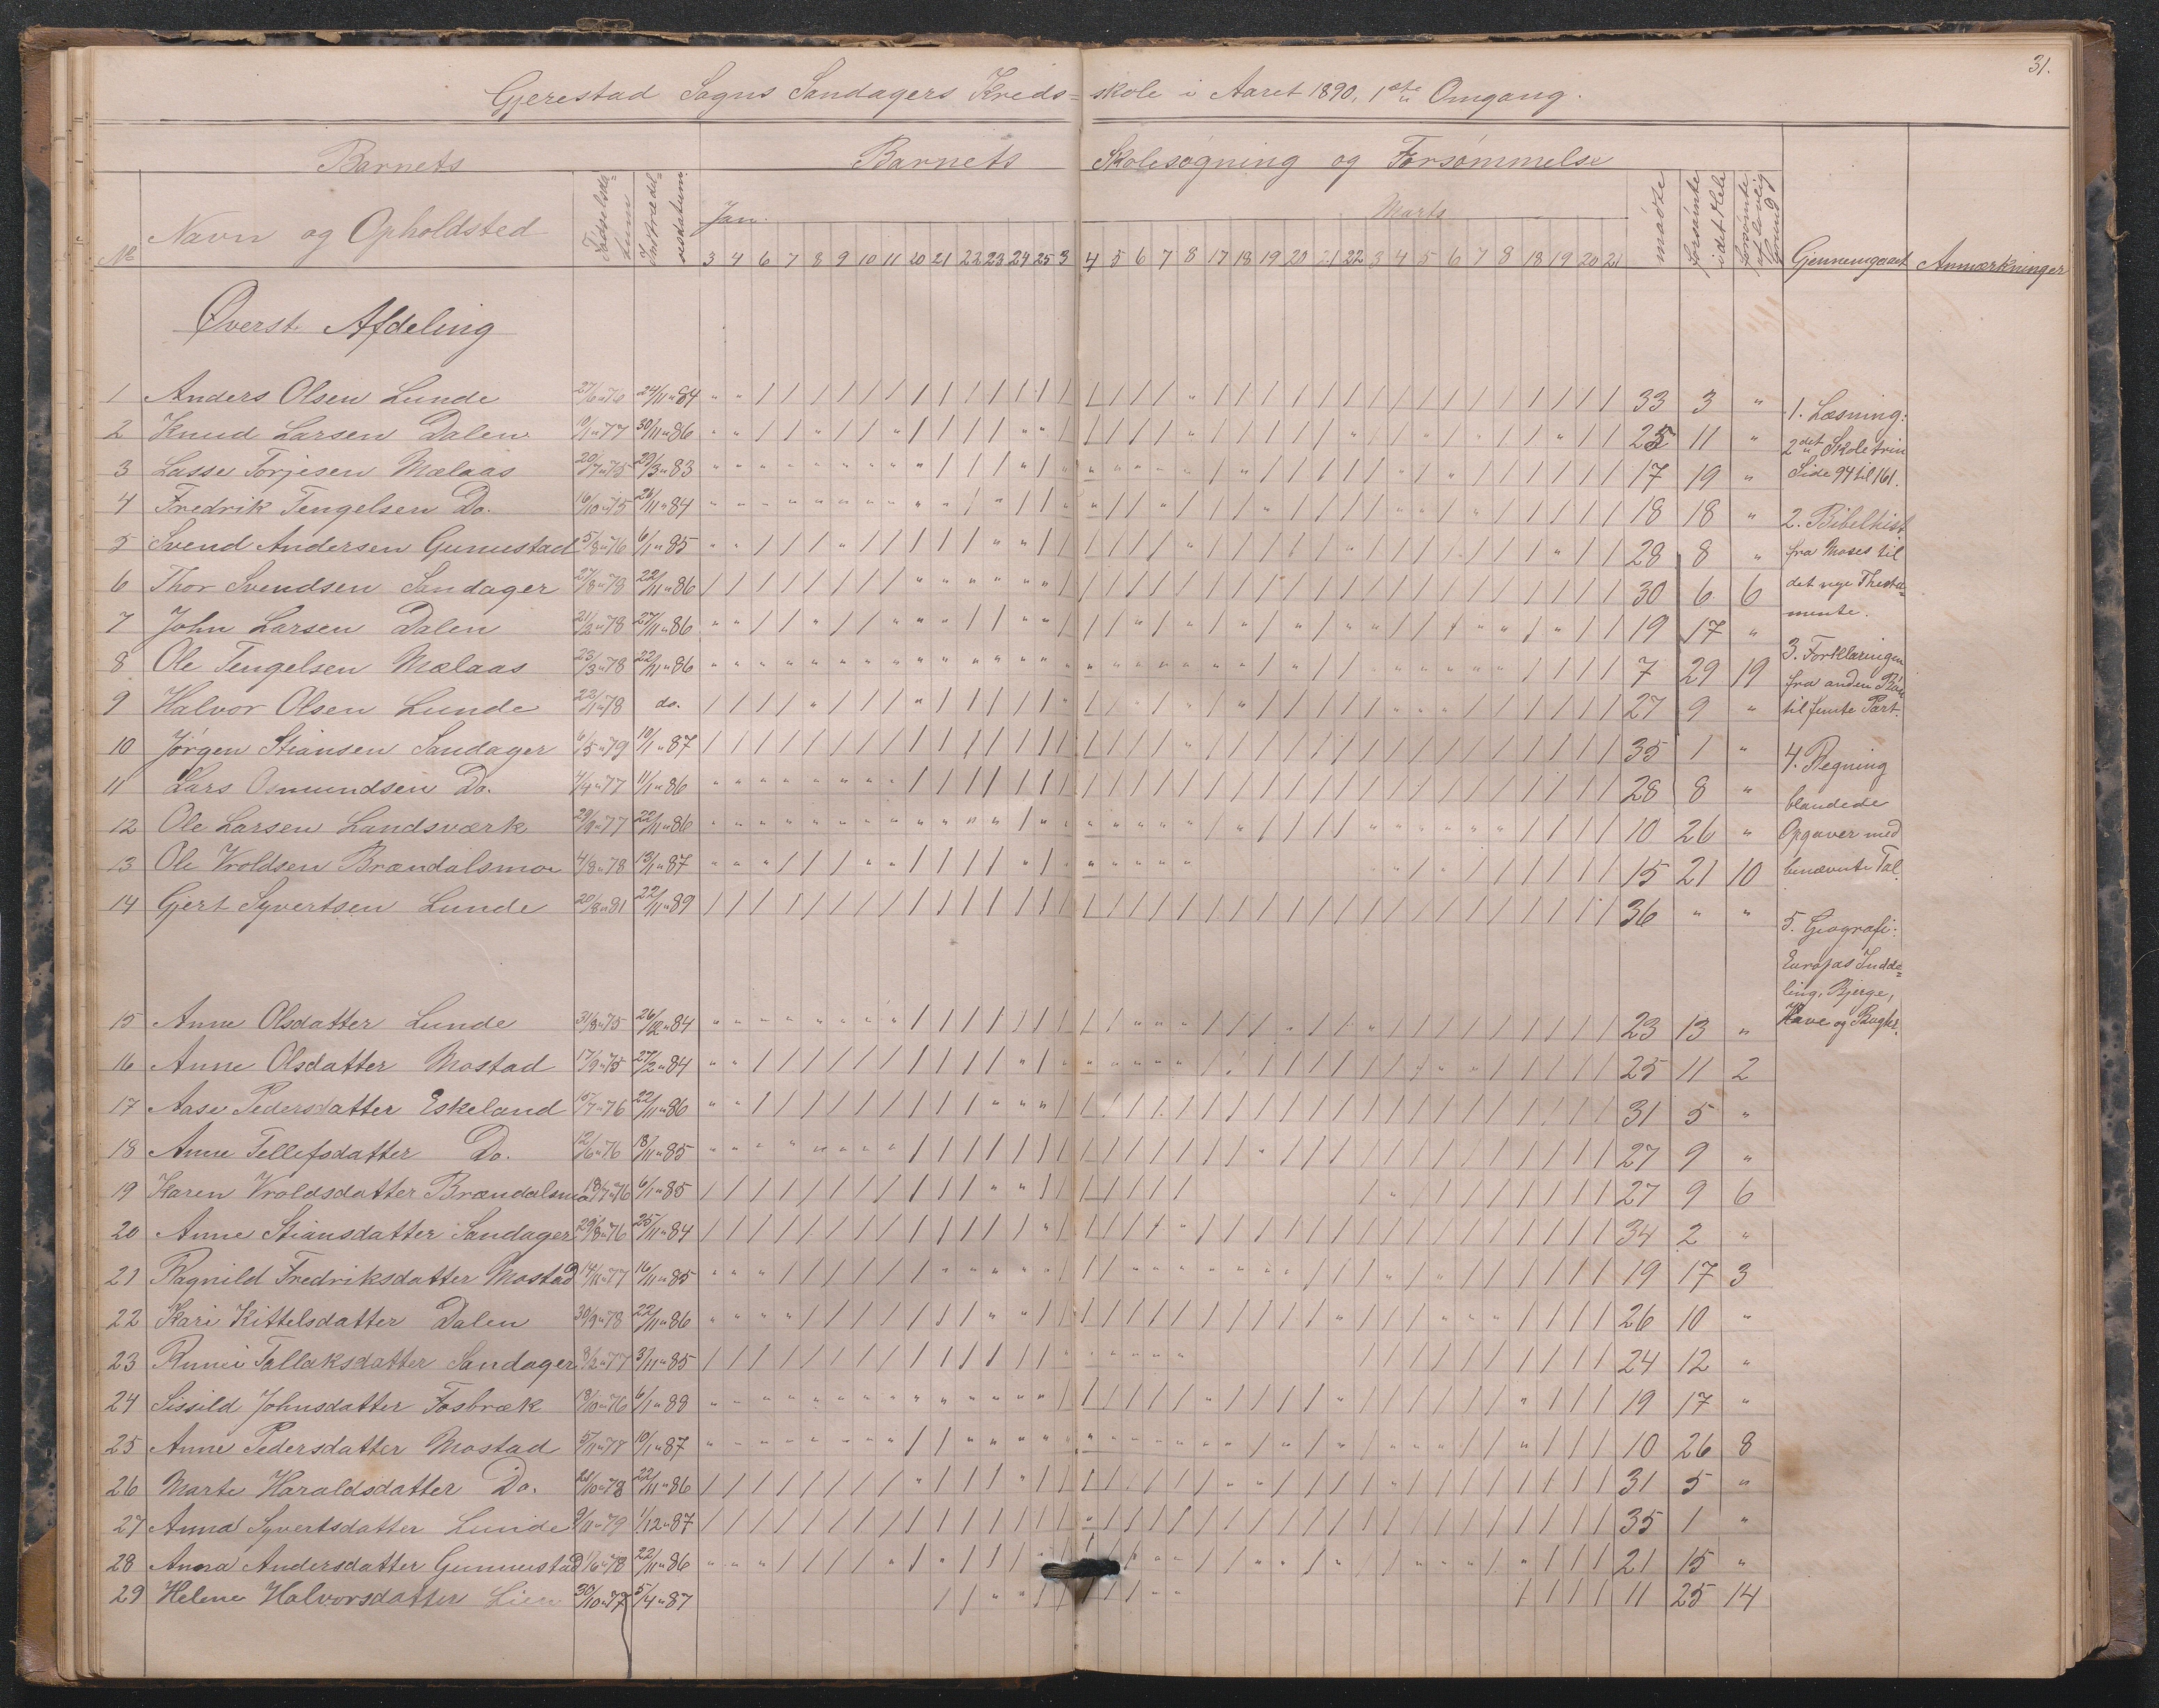 31.
Gjerestad Sogns Sandagers Kreds= skole i Aaret 1890, 1ste Omgang.
Barnets Barnets Skolesøgning og Forsømmelse
No Navn og Opholdsted Fødselsda= tum Indtrædel= sesdatum Jan. Marts mødte forsømte i det Hele forsømte af lovlig Grund Gjennemgaaet Anmærkninger
3 4 6 7 8 9 10 11 20 21 22 23 24 25 3 4 5 6 7 8 17 18 19 20 21 22 3 4 5 6 7 8 18 19 20 21
Øverst Afdeling
1 Anders Olsen Lunde 27/6 " 76 24/11 " 84 33 3 "
2 Knud Larsen Dalen 10/1 " 77 30/11 " 86 25 11 "
3 Lasse Torjesen Mælaas 20/7 " 75 29/3 " 83 17 19 "
4 Fredrik Tengelsen Do. 16/10 " 75 26/11 " 84 18 18 "
5 Svend Andersen Gunustad 5/8 " 76 6/1 " 85 28 8 "
6 Thor Svendsen Sandager 27/8 " 78 22/11 " 86 30 6 6
7 John Larsen Dalen 21/2 " 78 27/11 " 86 19 17 "
8 Ole Tengelsen Mælaas 23/3 " 78 22/11 " 86 7 29 19
9 Halvor Olsen Lunde 22/1 " 78 do. 27 9 "
10 Jørgen Stiansen Sandager 6/5 " 79 10/1 " 87 35 1 "
11 Lars Osmundsen Do. 4/4 " 77 11/1 " 86 28 8 "
12 Ole Larsen Landsværk 29/9 " 77 22/11 " 86 10 26 "
13 Ole Vroldsen Brændalsmo 4/8 " 78 13/1 " 87 15 21 10
14 Gjert Syvertsen Lunde 20/8 " 81 22/11 " 89 36 " "
15 Anne Olsdatter Lunde 31/8 " 75 26/12 " 84 23 13 "
16 Anne Olsdatter Mostad 17/9 " 75 27/2 " 84 25 11 2
17 Aase Pedersdatter Eskeland 15/7 " 76 22/11 " 86 31 5 "
18 Anne Tellefsdatter Do. 12/6 " 76 18/11 " 85 27 9 "
19 Karen Vroldsdatter Brændalsmo 18/7 " 76 6/1 " 85 27 9 6
20 Anne Stiansdatter Sandager 29/8 " 76 25/11 " 84 34 2 "
21 Ragnild Fredriksdatter Mostad 14/11 " 77 16/11 " 85 19 17 3
22 Kari Kittelsdatter Dalen 30/9 " 78 22/11 " 86 26 10 "
23 Tallaksdatter Sandager 8/2 " 77 3/11 " 85 24 12 "
24 Sissild Johnsdatter Fosbræk 18/10 " 76 6/1 " 88 19 17 "
25 Anne Pedersdatter Mostad 5/11 " 78 10/1 " 87 10 26 8
26 Marte Haraldsdatter Do. 21/10 " 78 22/11 " 86 31 5 "
27 Anna Syvertsdatter Lunde 9/11 " 79 1/12 " 87 35 1 "
28 Anna Andersdatter Gunnustad 1/6 " 78 22/11 " 86 21 15 "
29 Helene Halvorsdatter Lien 30/10 " 77 5/4 " 87 11 25 14
1. Læsning:
2det Skoletrin
Side 94 til 161.
2. Bibelhist
fra Moses til
det nye Thesta=
mente.
3. Forklaringen
fra anden Bøn
til femte Part.
4. Regning
blandede
Opgaver med
benævnte Tal.
5. Geografi:
Europas Indde=
ling, Bjerge,
Have og Bugter.